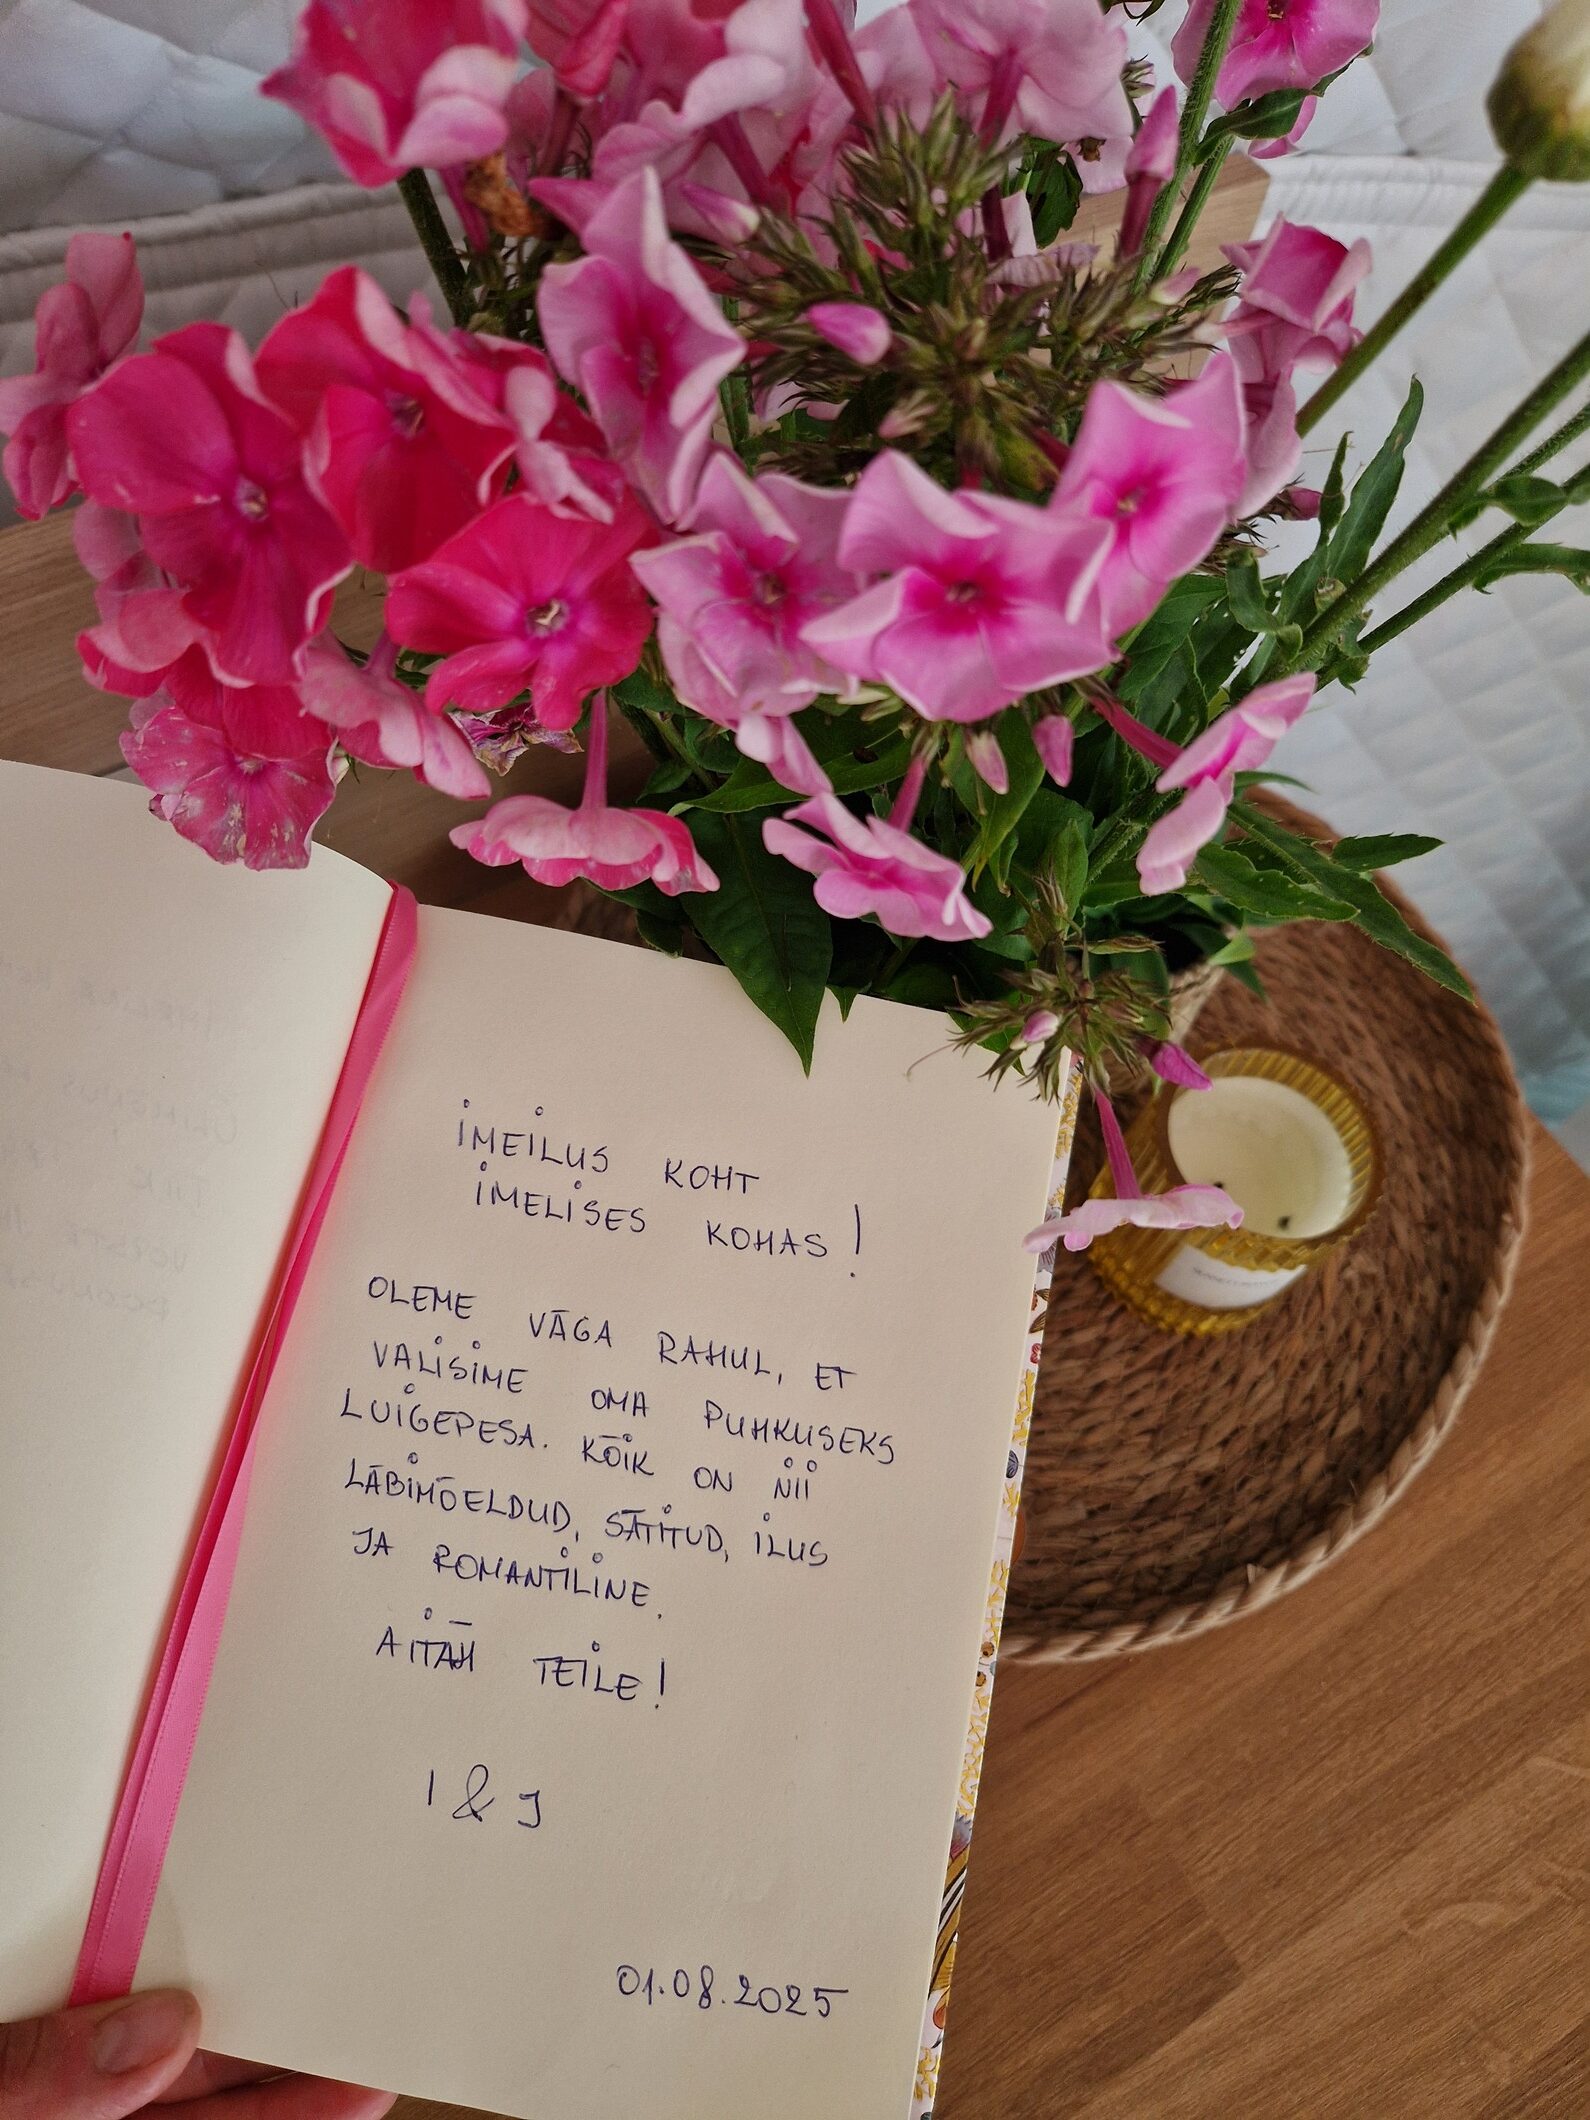 IMEILUS KOHT
IMELISES KOHAS!
OLEME VÄGA RAHUL, ET
VALISIME OMA PUHKUSEKS
LUIGEPESA. KÕIK ON NII
LÄBIMÕELDUD, SÄTITUD, ILUS
JA ROMANTILINE.
AITÄH TEILE!
I & J
01.08.2025